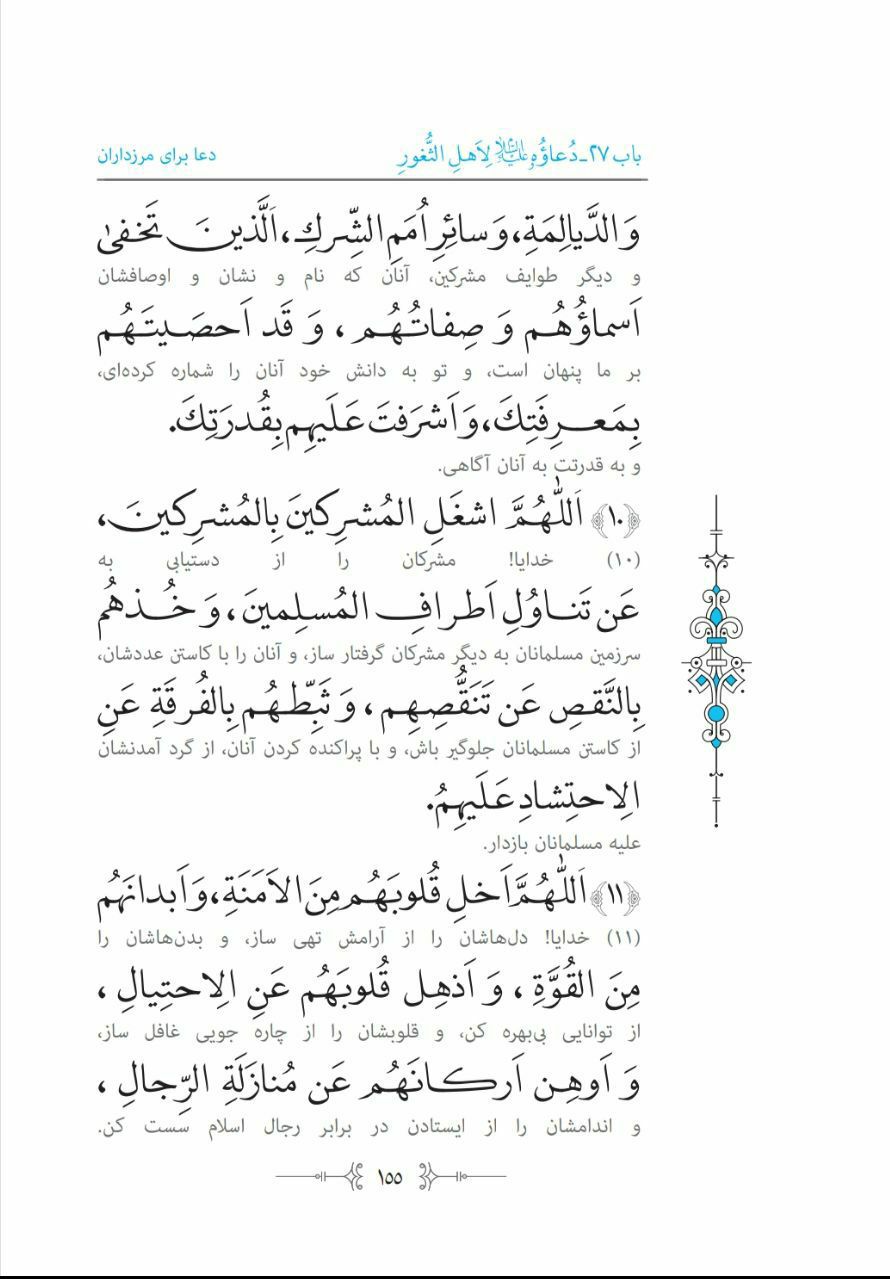 باب ۲۷ـ دُعاؤُهِ علیه‌السلام لِاَهلِ الثُّغورِ دعا برای مرزداران
وَ الدَّيالِمَةِ، وَ سائِرِ اُمَمِ الشِّركِ، اَلَّذينَ تَخفىٰ
و دیگر طوایف مشرکین، آنان که نام و نشان و اوصافشان
اَسماؤُهُم وَ صِفاتُهُم، وَ قَد اَحصَيتَهُم
بر ما پنهان است، و تو به دانش خود آنان را شماره کرده‌ای،
بِمَعرِفَتِكَ، وَ اَشرَفتَ عَلَيهِم بِقُدرَتِكَ.
و به قدرتت به آنان آگاهی.
﴿۱۰﴾ اَللّٰهُمَّ اشغَلِ المُشرِكينَ بِالمُشرِكينَ،
(۱۰) خدایا! مشرکان را از دستیابی به
عَن تَناوُلِ اَطرافِ المُسلِمينَ، وَ خُذهُم
سرزمین مسلمانان به دیگر مشرکان گرفتار ساز، و آنان را با کاستن عددشان،
بِالنَّقصِ عَن تَنَقُّصِهِم، وَ ثَبِّطهُم بِالفُرقَةِ عَنِ
از کاستن مسلمانان جلوگیر باش، و با پراکنده کردن آنان، از گرد آمدنشان
الِاحتِشادِ عَلَيهِمُ.
علیه مسلمانان بازدار.
﴿۱۱﴾ اَللّٰهُمَّ اَخلِ قُلوبَهُم مِنَ الاَمَنَةِ، وَ اَبدانَهُم
(۱۱) خدایا! دل‌هاشان را از آرامش تهی ساز، و بدن‌هاشان را
مِنَ القُوَّةِ، وَ اَذهِل قُلوبَهُم عَنِ الِاحتِيالِ،
از توانایی بی‌بهره کن، و قلوبشان را از چاره جویی غافل ساز،
وَ اَوهِن اَركانَهُم عَن مُنازَلَةِ الرِّجالِ،
و اندامشان را از ایستادن در برابر رجال اسلام سست کن.
۱۵۵